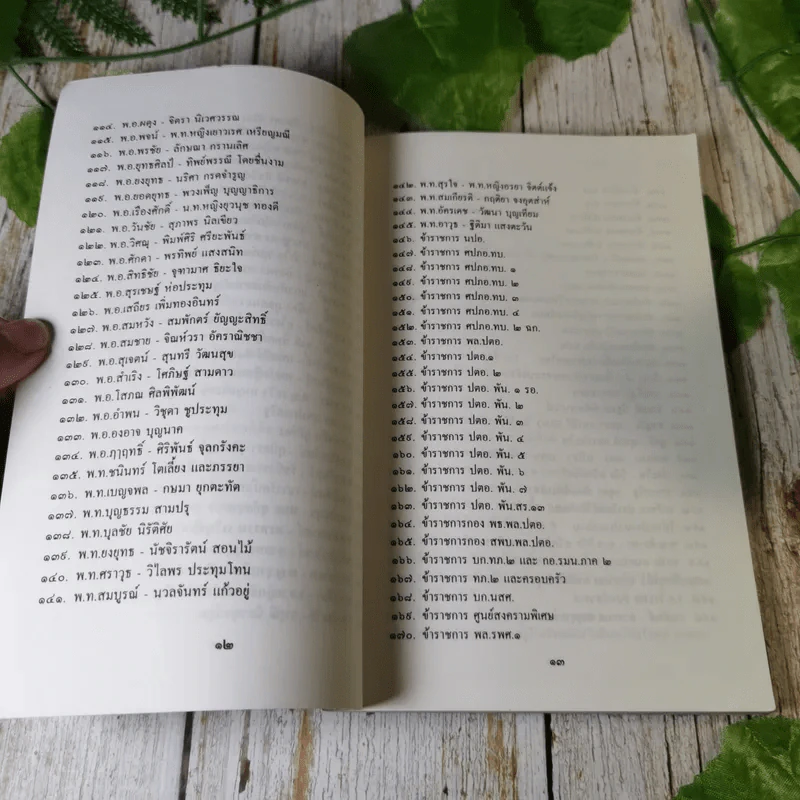 ๑๑๔. พ.อ.ผดุง - จิตรา นิเวศวรรณ
๑๑๕. พ.อ.พจน์ - พ.ท.หญิงเยาวเรศ เหรียญมณี
๑๑๖. พ.อ.พรชัย - ลักษณา กรานเลิศ
๑๑๗. พ.อ.ยุทธศิลป์ - ทิพย์พรรณี โดยชื่นงาม
๑๑๘. พ.อ.ยงยุทธ - นริศา กรดจำรูญ
๑๑๙. พ.อ.ยอดยุทธ - พวงเพ็ญ บุญญาธิการ
๑๒๐. พ.อ.เรืองศักดิ์ - น.ท.หญิงยุวนุช ทองดี
๑๒๑. พ.อ.วันชัย - สุภาพร นิลเขียว
๑๒๒. พ.อ.วิศณุ - พิมพ์ศิริ ศรียะพันธ์
๑๒๓. พ.อ.ศักดา - พรทิพย์ แสงสนิท
๑๒๔. พ.อ.สิทธิชัย - จุฑามาศ ธิยะใจ
๑๒๕. พ.อ.สุรเชษฐ์ ห่อประทุม
๑๒๖. พ.อ.เสถียร เพิ่มทองอินทร์
๑๒๗. พ.อ.สมหวัง - สมพักตร์ ยัญญะสิทธิ์
๑๒๘. พ.อ.สมชาย - จิณห์วรา อัคราณิชชา
๑๒๙. พ.อ.สุเจตน์ - สุนทรี วัฒนสุข
๑๓๐. พ.อ.สำเริง - โศภิษฐ์ สามดาว
๑๓๑. พ.อ.โสภณ ศิลพิพัฒน์
๑๓๒. พ.อ.อำพน - วิชุดา ชูประทุม
๑๓๓. พ.อ.องอาจ บุญนาค
๑๓๔. พ.อ.ฦาฤทธิ์ - ศิริพันธ์ จุลกรังคะ
๑๓๕. พ.ท.ชนินทร์ โตเลี้ยง และภรรยา
๑๓๖. พ.ท.เบญจพล - กษมา ยุกตะทัต
๑๓๗. พ.ท.บุญธรรม สามปรุ
๑๓๘. พ.ท.บุลชัย นิรัติศัย
๑๓๙. พ.ท.ยงยุทธ - นัชจิรารัตน์ สอนไม้
๑๔๐. พ.ท.ศราวุธ - วิไลพร ประทุมโทน
๑๔๑. พ.ท.สมบูรณ์ - นวลจันทร์ แก้วอยู่
๑๒
๑๔๒. พ.ท.สุรใจ - พ.ท.หญิงอรยา จิตต์แจ้ง
๑๔๓. พ.ท.สมเกียรติ - กฤติยา จงอุตส่าห์
๑๔๔. พ.ท.อัครเดช - วัฒนา บุญเทียม
๑๔๕. พ.ท.อาวุธ - ฐิติมา แสงตะวัน
๑๔๖. ข้าราชการ นปอ.
๑๔๗. ข้าราชการ ศปภอ.ทบ.
๑๔๘. ข้าราชการ ศปภอ.ทบ. ๑
๑๔๙. ข้าราชการ ศปภอ.ทบ. ๒
๑๕๐. ข้าราชการ ศปภอ.ทบ. ๓
๑๕๑. ข้าราชการ ศปภอ.ทบ. ๔
๑๕๒. ข้าราชการ ศปภอ.ทบ. ๒ ฉก.
๑๕๓. ข้าราชการ พล.ปตอ.
๑๕๔. ข้าราชการ ปตอ.๑
๑๕๕. ข้าราชการ ปตอ. ๒
๑๕๖. ข้าราชการ ปตอ. พัน. ๑ รอ.
๑๕๗. ข้าราชการ ปตอ. พัน. ๒
๑๕๘. ข้าราชการ ปตอ. พัน. ๓
๑๕๙. ข้าราชการ ปตอ. พัน. ๔
๑๖๐. ข้าราชการ ปตอ. พัน. ๕
๑๖๑. ข้าราชการ ปตอ. พัน. ๖
๑๖๒. ข้าราชการ ปตอ. พัน. ๗
๑๖๓. ข้าราชการ ปตอ. พัน.สร.๑๓
๑๖๔. ข้าราชการกอง พธ.พล.ปตอ.
๑๖๕. ข้าราชการกอง สพบ.พล.ปตอ.
๑๖๖. ข้าราชการ บก.ทภ.๒ และ กอ.รมน.ภาค ๒
๑๖๗. ข้าราชการ ทภ.๒ และครอบครัว
๑๖๘. ข้าราชการ บก.นสศ.
๑๖๙. ข้าราชการ ศูนย์สงครามพิเศษ
๑๗๐. ข้าราชการ พล.รพศ.๑
๑๓